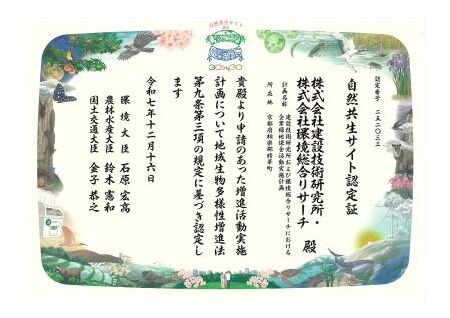 自然共生サイト
30by30
認定番号　二五-二〇三三
自然共生サイト認定証
株式会社建設技術研究所・
株式会社環境総合リサーチ　殿
計画名称　建設技術研究所および環境総合リサーチにおける
企業緑地保全活動実施計画
所在地　京都府相楽郡精華町
貴殿より申請のあった増進活動実施
計画について地域生物多様性増進法
第九条第三項の規定に基づき認定し
ます
令和七年十二月十六日
環境大臣　石原宏高
農林水産大臣　鈴木憲和
国土交通大臣　金子恭之